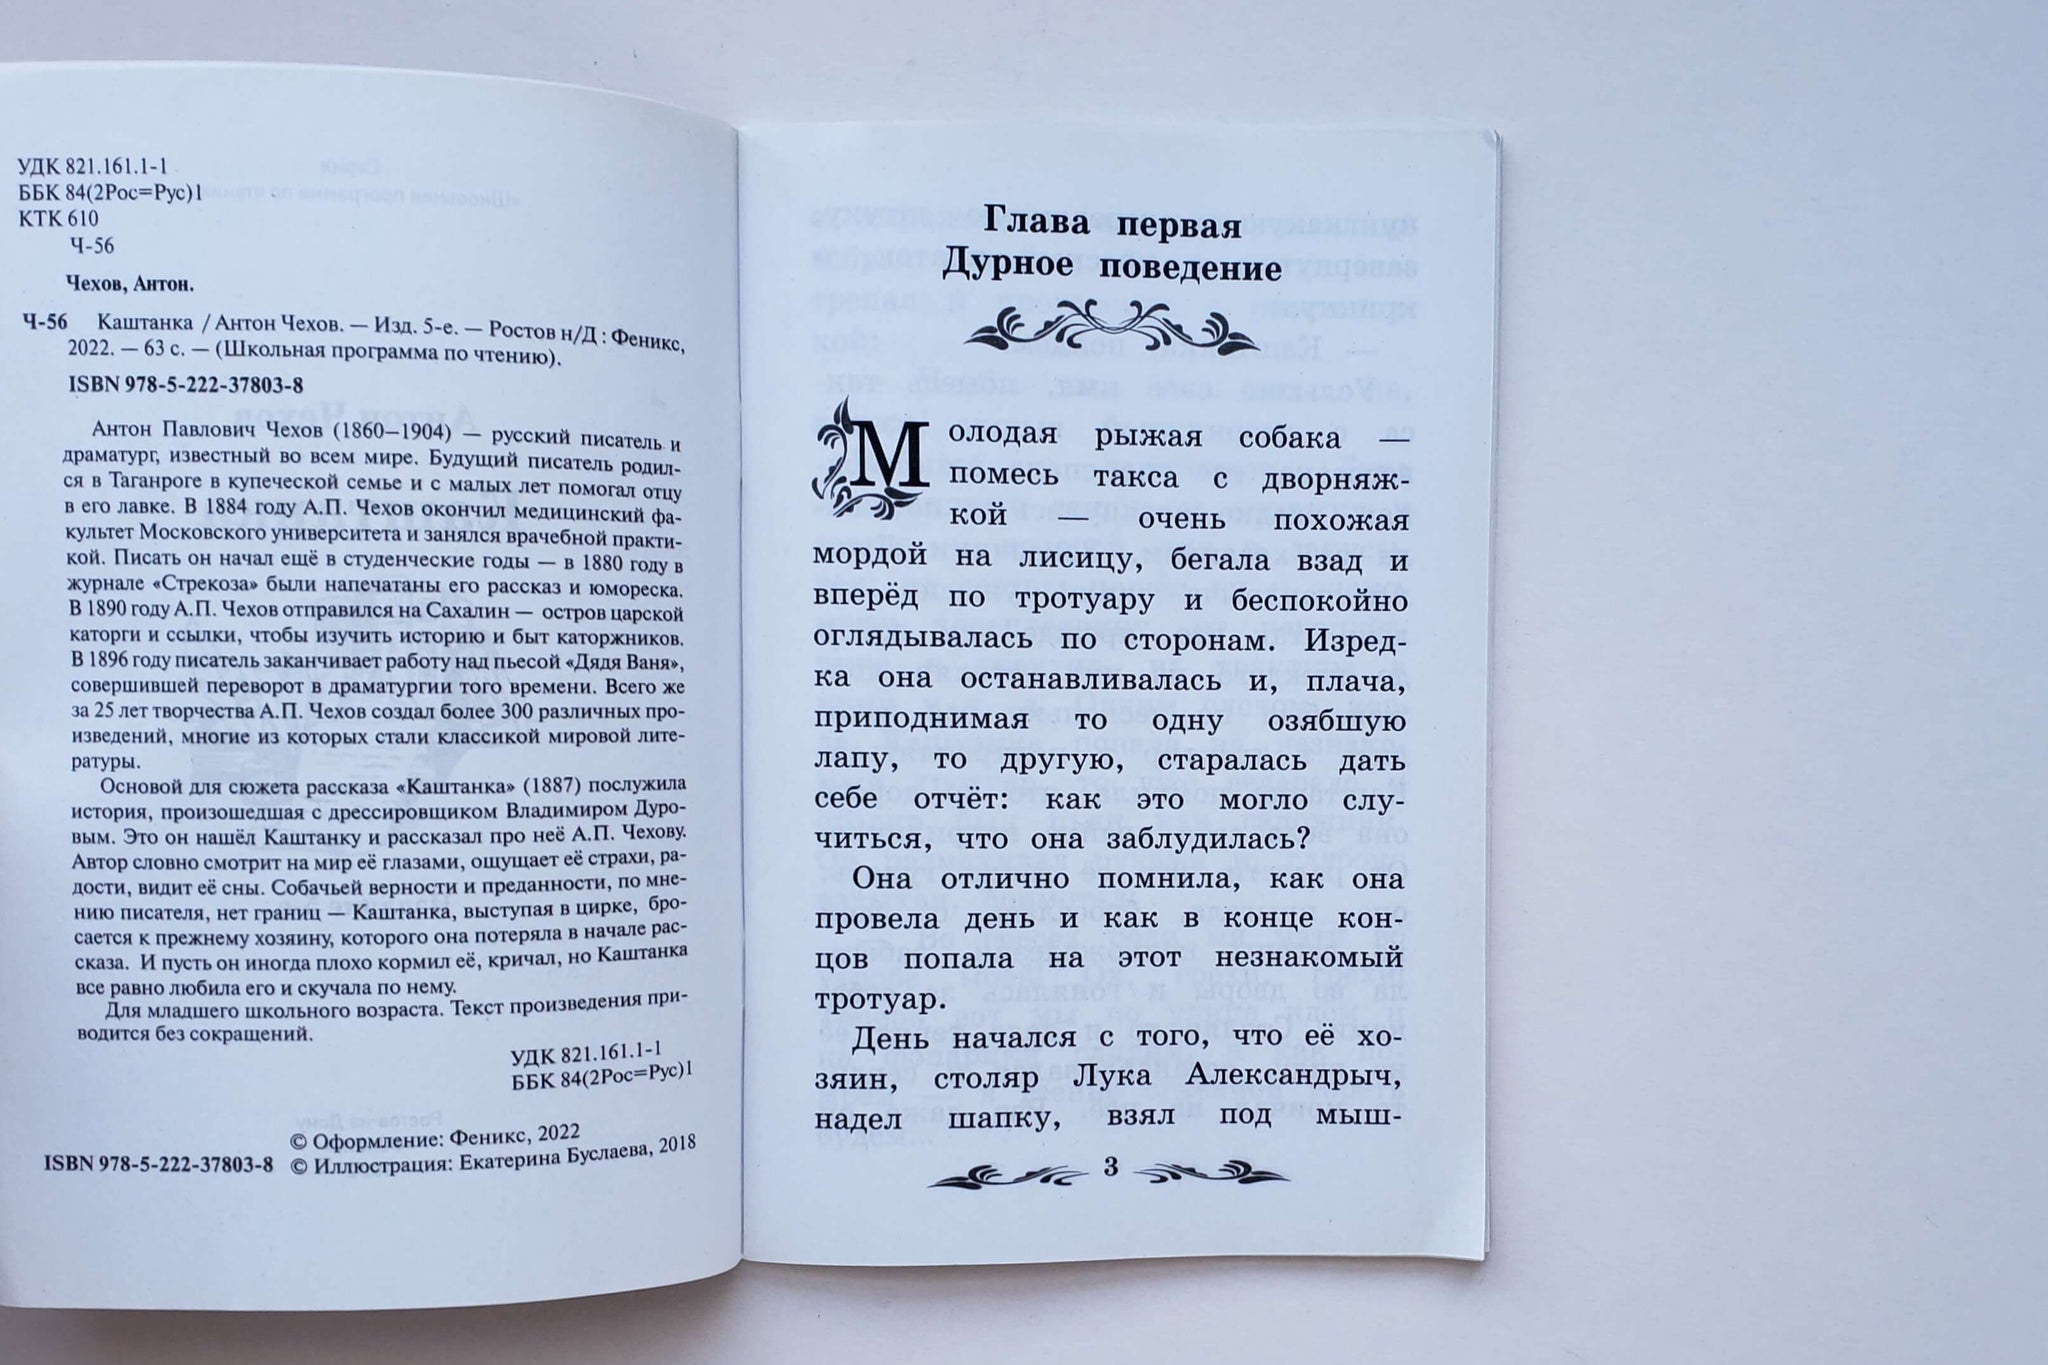 УДК 821.161.1-1
ББК 84(2Рос=Рус)1
КТК 610
Ч-56
Чехов, Антон.
Ч-56 Каштанка / Антон Чехов. — Изд. 5-е. — Ростов н/Д : Феникс,
2022. — 63 с. — (Школьная программа по чтению).
ISBN 978-5-222-37803-8
Антон Павлович Чехов (1860–1904) — русский писатель и
драматург, известный во всем мире. Будущий писатель родил-
ся в Таганроге в купеческой семье и с малых лет помогал отцу
в его лавке. В 1884 году А.П. Чехов окончил медицинский фа-
культет Московского университета и занялся врачебной практи-
кой. Писать он начал ещё в студенческие годы — в 1880 году в
журнале «Стрекоза» были напечатаны его рассказ и юмореска.
В 1890 году А.П. Чехов отправился на Сахалин — остров царской
каторги и ссылки, чтобы изучить историю и быт каторжников.
В 1896 году писатель заканчивает работу над пьесой «Дядя Ваня»,
совершившей переворот в драматургии того времени. Всего же
за 25 лет творчества А.П. Чехов создал более 300 различных про-
изведений, многие из которых стали классикой мировой лите-
ратуры.
Основой для сюжета рассказа «Каштанка» (1887) послужила
история, произошедшая с дрессировщиком Владимиром Дуро-
вым. Это он нашёл Каштанку и рассказал про неё А.П. Чехову.
Автор словно смотрит на мир её глазами, ощущает её страхи, ра-
дости, видит её сны. Собачьей верности и преданности, по мне-
нию писателя, нет границ — Каштанка, выступая в цирке, бро-
сается к прежнему хозяину, которого она потеряла в начале рас-
сказа. И пусть он иногда плохо кормил её, кричал, но Каштанка
все равно любила его и скучала по нему.
Для младшего школьного возраста. Текст произведения при-
водится без сокращений.
УДК 821.161.1-1
ББК 84(2Рос=Рус)1
© Оформление: Феникс, 2022
ISBN 978-5-222-37803-8 © Иллюстрация: Екатерина Буслаева, 2018
Глава первая
Дурное поведение
Молодая рыжая собака —
помесь такса с дворняж-
кой — очень похожая
мордой на лисицу, бегала взад и
вперёд по тротуару и беспокойно
оглядывалась по сторонам. Изред-
ка она останавливалась и, плача,
приподнимая то одну озябшую
лапу, то другую, старалась дать
себе отчёт: как это могло слу-
читься, что она заблудилась?
Она отлично помнила, как она
провела день и как в конце кон-
цов попала на этот незнакомый
тротуар.
День начался с того, что её хо-
зяин, столяр Лука Александрыч,
надел шапку, взял под мыш-
3